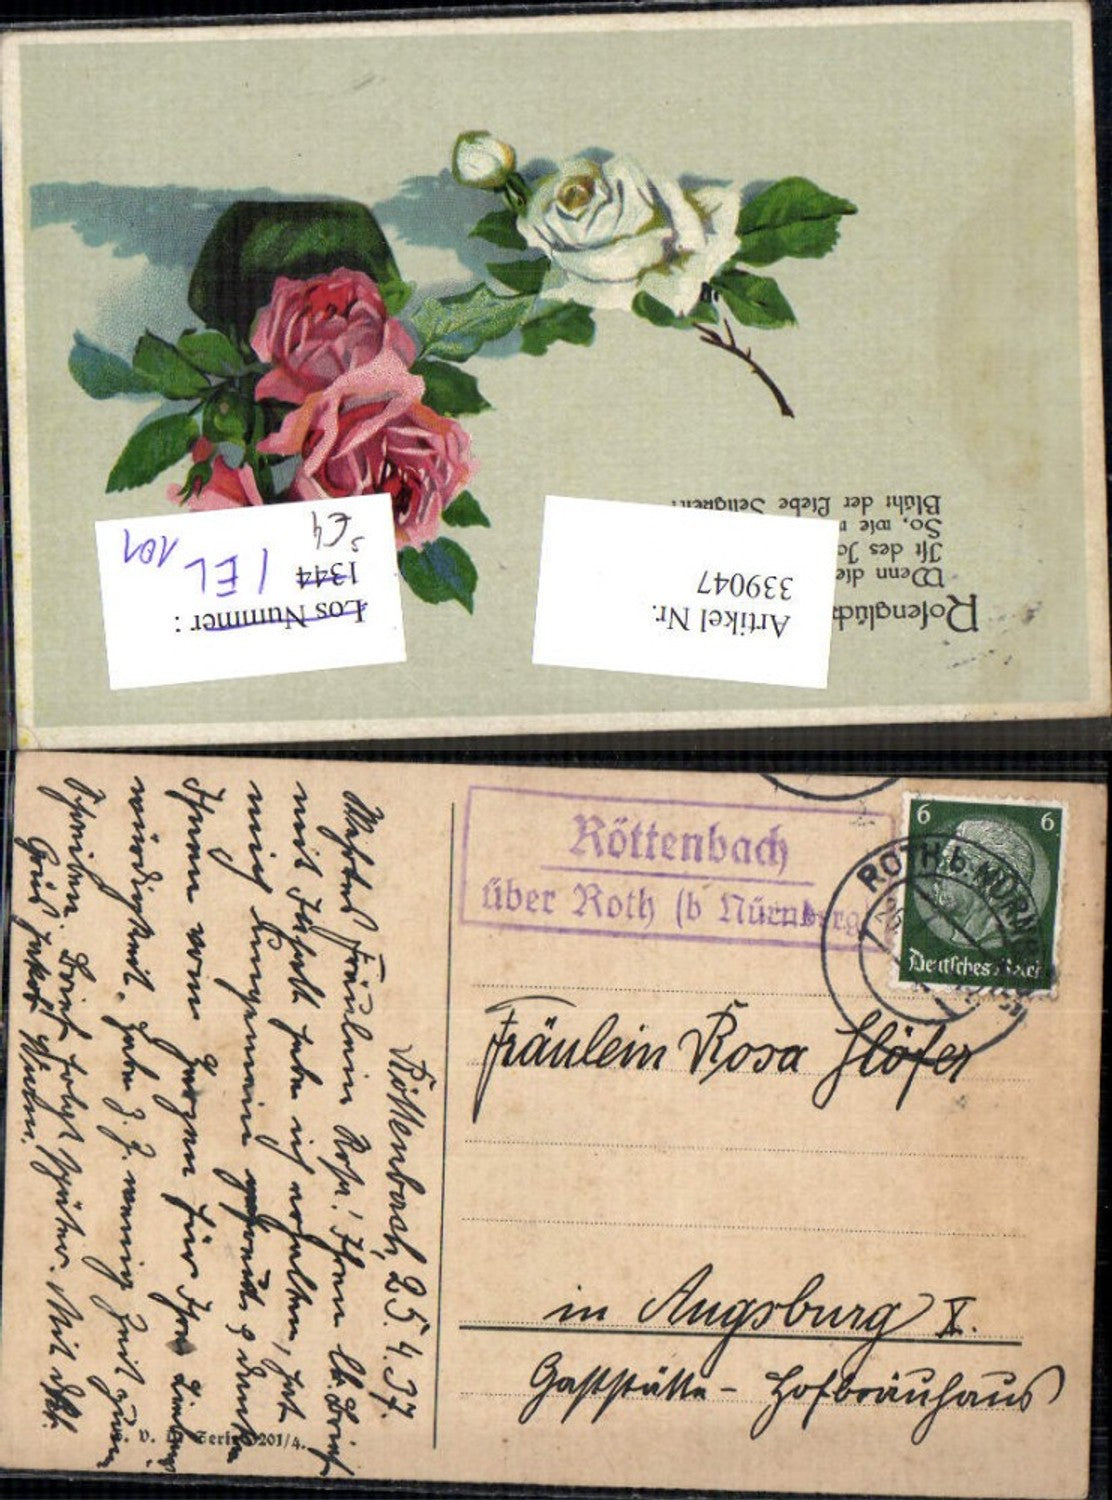 Rosenglück
Wenn die
Ist des Ja
So, wie
Blüht der Liebe Seligkeit!
Artikel Nr.
339047
Los Nummer :
1344
IEL 101
Röttenbach
über Roth (b Nürnberg)
ROTH b. NÜRNB
6 6
Deutsches Reich
Fräulein Rosa Höfer
in Augsburg X.
Gaststätte - Hofbräuhaus
Röttenbach, 25.4.37.
Wertes Fräulein Rosa! Ihren lb. Brief
mit Inhalt habe ich erhalten, hat
mich ungemein gefreut, & danke
Ihnen von Herzen für Ihre Liebens
würdigkeit. Habe z. Z. wenig Zeit zum
schreiben. Brief folgt später. Mit
Gruß Jakob
Serie 201/4.